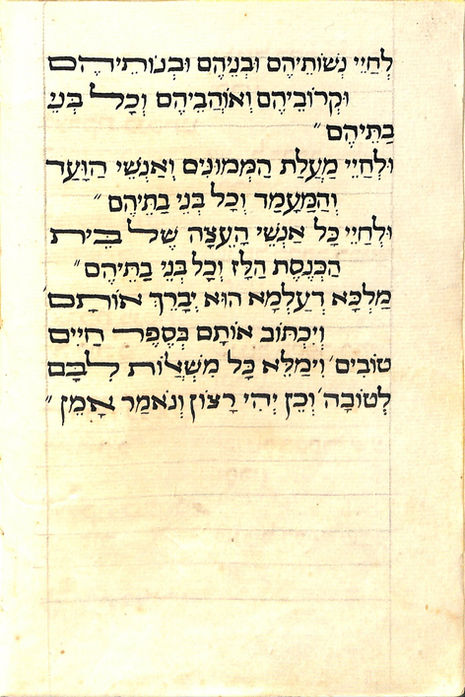 לְחַיֵּי נְשׁוֹתֵיהֶם וּבְנֵיהֶם וּבְנוֹתֵיהֶם
וּקְרוֹבֵיהֶם וְאוֹהֲבֵיהֶם וְכָל בְּנֵי
בָתֵּיהֶם ״
וּלְחַיֵּי מַעֲלַת הַמְּמוּנִּים וְאַנְשֵׁי הַוַּעַד
וְהַמַּעֲמַד וְכָל בְּנֵי בָתֵּיהֶם ״
וּלְחַיֵּי כָּל אַנְשֵׁי הָעֵצָה שֶׁל בֵּית
הַכְּנֶסֶת הַלָּז וְכָל בְּנֵי בָתֵּיהֶם ״
מַלְכָּא דְעָלְמָא הוּא יְבָרֵךְ אוֹתָם
וְיִכְתּוֹב אוֹתָם בְּסֵפֶר חַיִּים
טוֹבִים׳ וִימַלֵּא כָּל מִשְׁאֲלוֹת לִבָּם
לְטוֹבָה׳ וְכֵן יְהִי רָצוֹן וְנֹאמַר אָמֵן ״